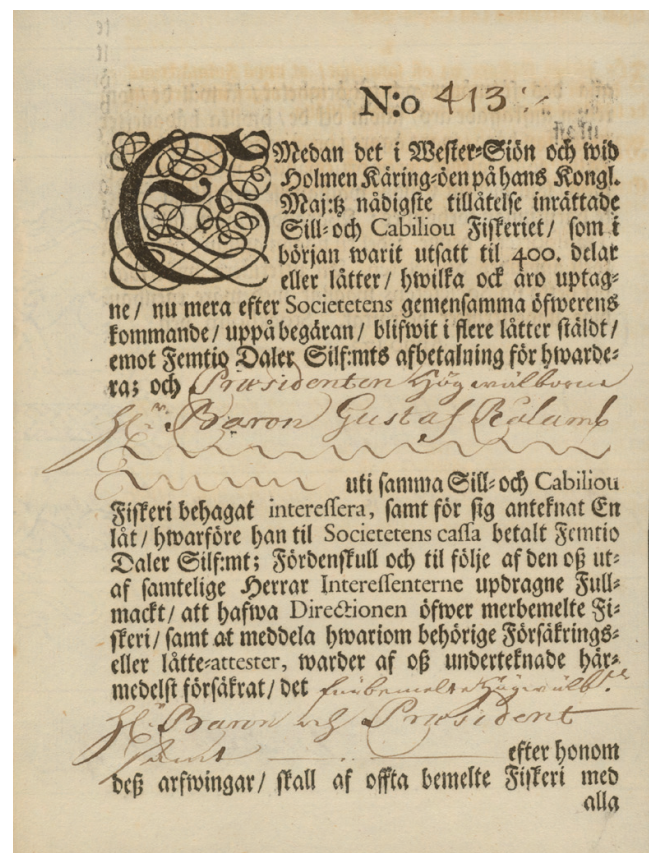 N:o 413
EMedan det i Wester-Siön och wid
Holmen Käring-öen på hans Kongl.
Maj:tz nådigste tillåtelse inrättade
Sill- och Cabiliou Fiskeriet/ som i
början warit utsatt til 400. delar
eller låtter/ hwilka ock äro uptag-
ne/ nu mera efter Societetens gemensamma öfwerens
kommande/ uppå begäran/ blifwit i flere låtter stäldt/
emot Femtio Daler Silf:mts afbetalning för hwarde-
ra; och Præsidenten Högwälborne
Hr. Baron Gustaf Rålamb
uti samma Sill- och Cabiliou
Fiskeri behagat interessera, samt för sig anteknat En
låt/ hwarföre han til Societetens cassa betalt Femtio
Daler Silf:mt; Fördenskull och til följe af den oß ut-
af samtelige Herrar Interessenterne updragne Full-
mackt/ att hafwa Directionen öfwer merbemelte Fi-
skeri/ samt at meddela hwariom behörige Försäkrings-
eller låtte-attester, warder af oß underteknade här-
medelst försäkrat/ det Högwälb.
Hr. Baron och Præsident
samt efter honom
deß arfwingar/ skall af offta bemelte Fiskeri med
alla